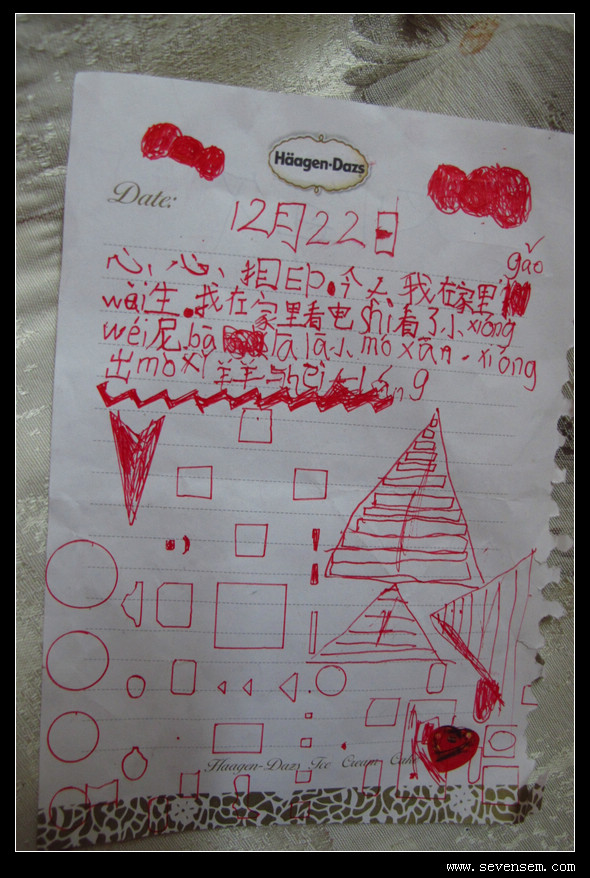 Häagen-Dazs
Date:
12月22日
gǎo
心心相印.今天我在家里
wèi生.我在家里看电shì看了小xióng
wéi尼.bā lā lā小mó xān.xióng
出mò xǐ羊羊
Haagen-Dazs Ice Cream Cake
www.sevensem.com